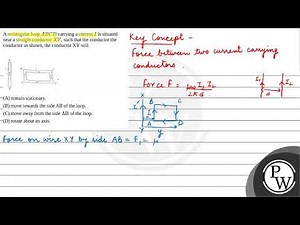 A rectangular loop ABCD carrying a current I, is situated
near a straight conductor XY, such that the conductor the
conductor as shown, the conductor XY will
(A) remain stationary.
(B) move towards the side AB of the loop.
(C) move away from the side AB of the loop.
(D) rotate about its axis.
Key Concept -
Force between two current carrying
conductors.
Force F = μ₀ I₁ I₂
2πd
I₁ I₂
d
X
I' B C
I
A D
Y
Force on wire XY by side AB = F₁ = μ
PW